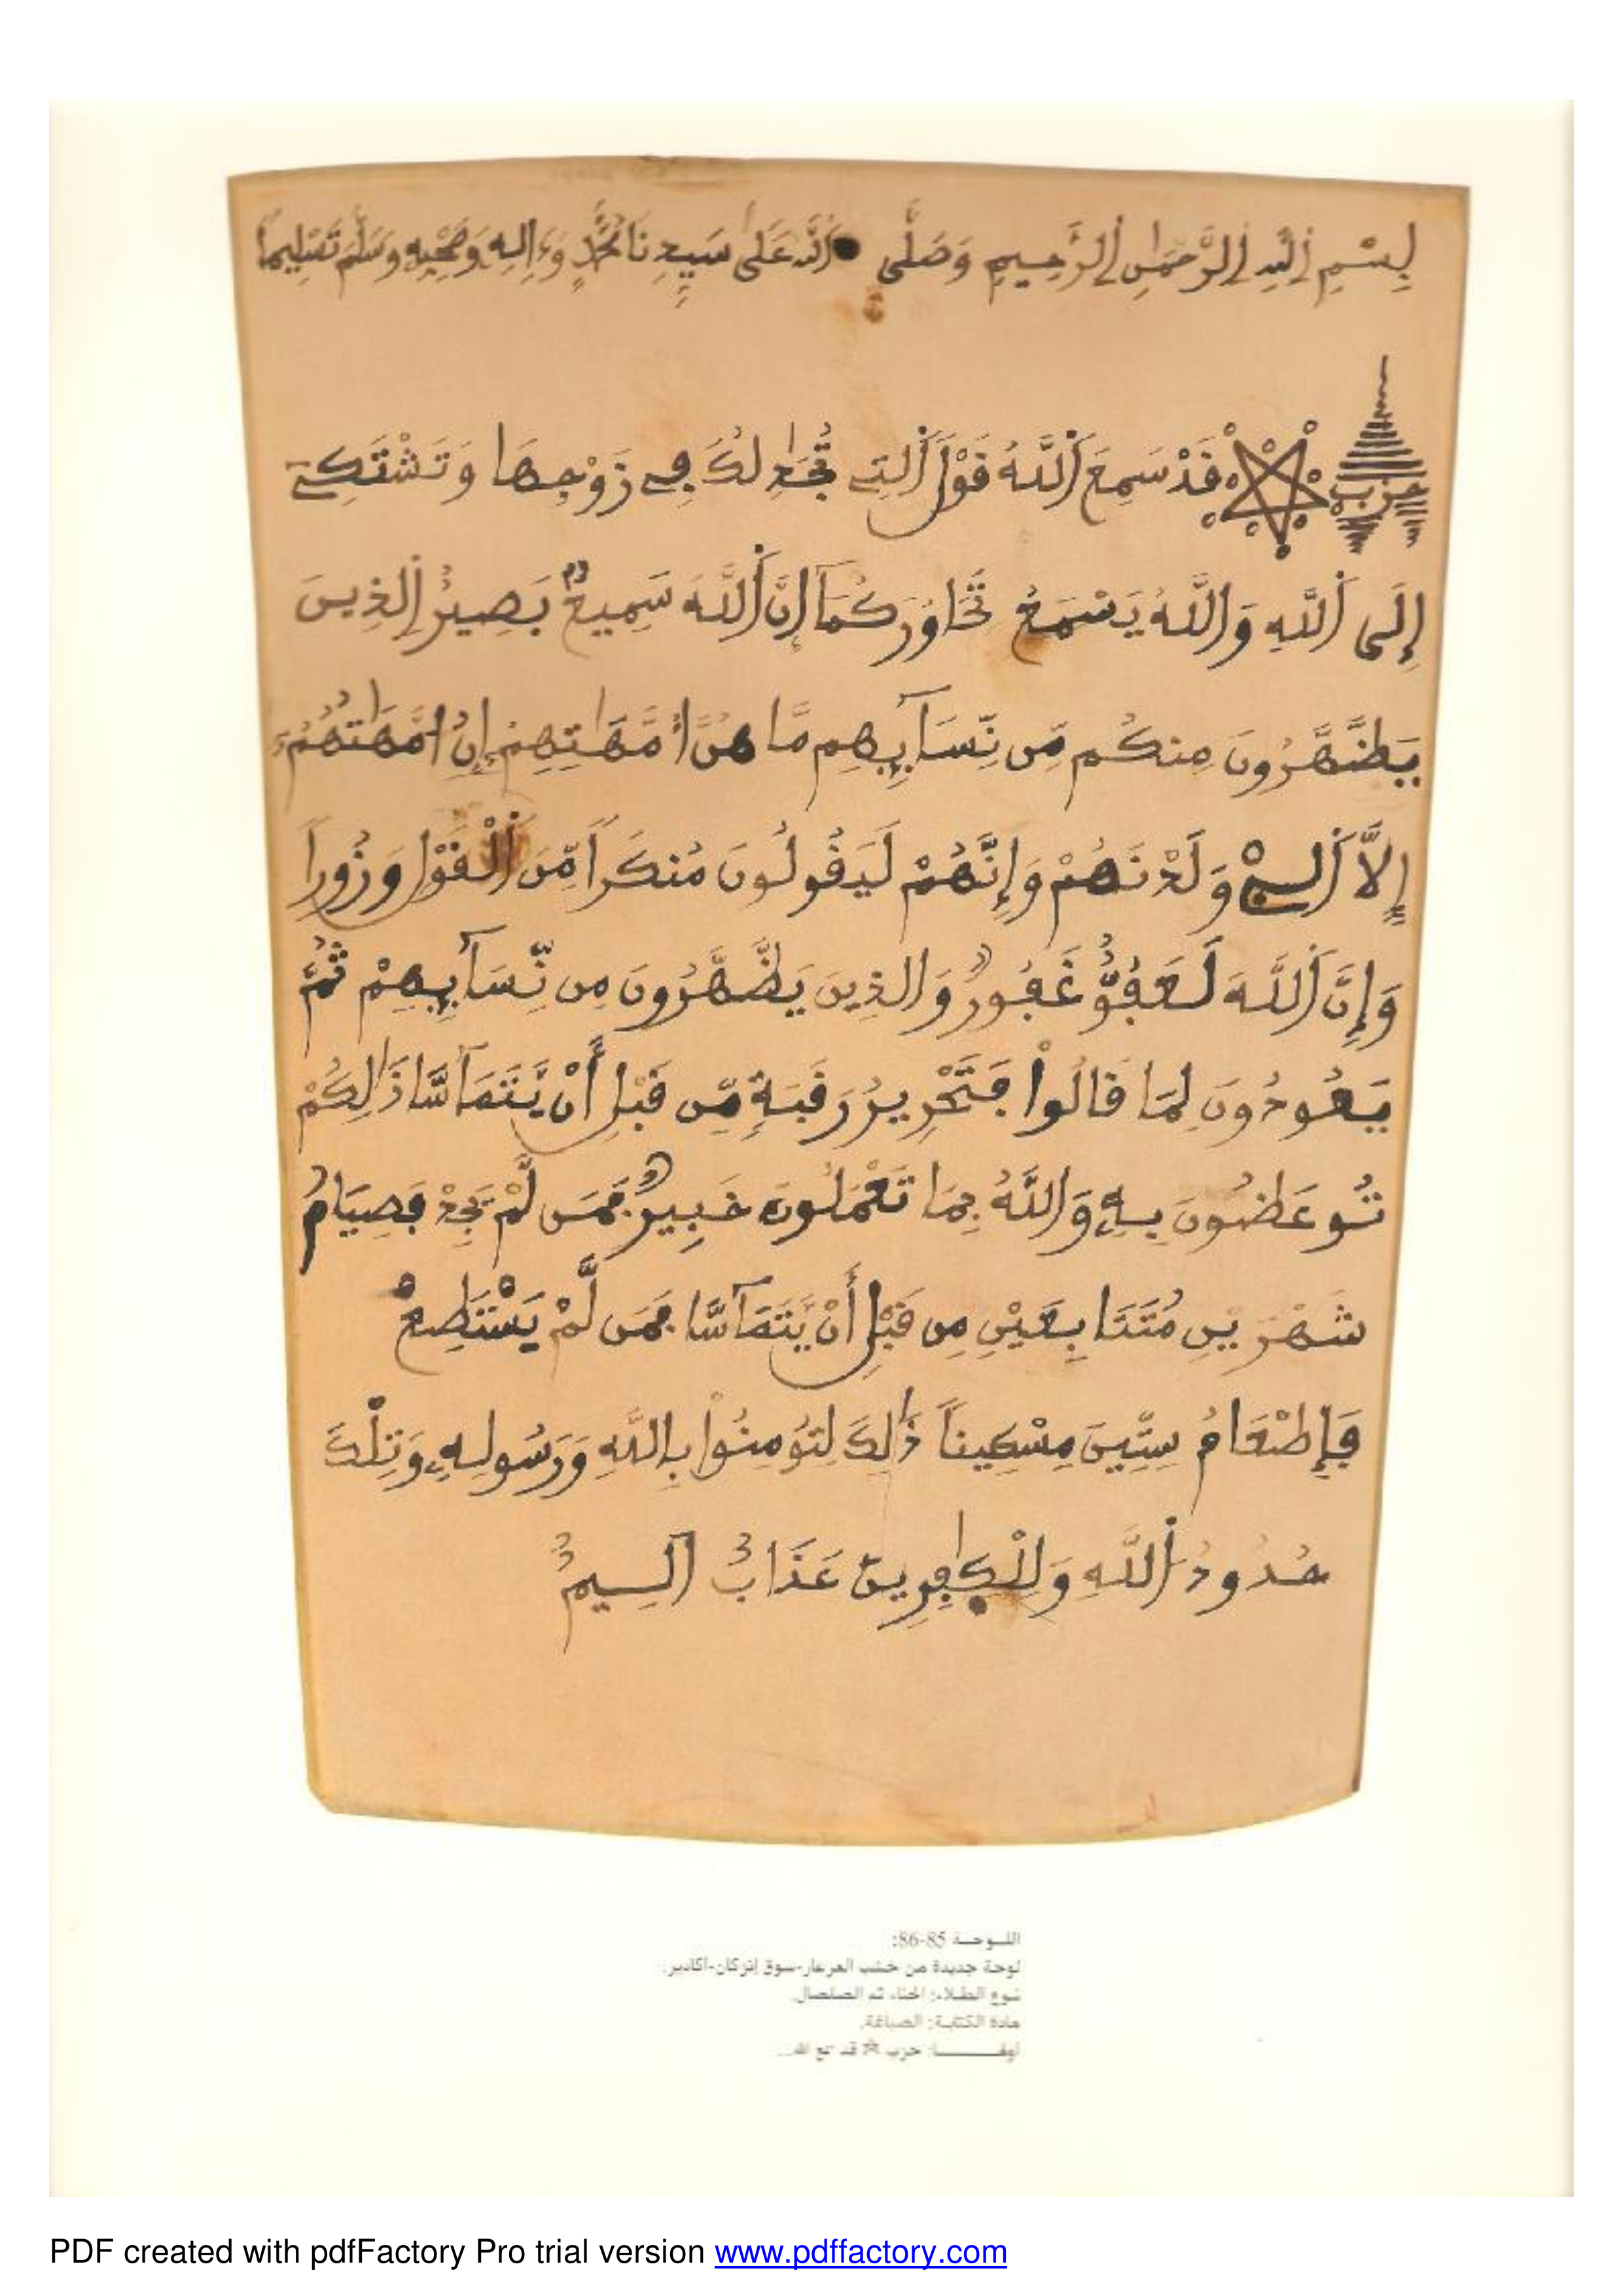 بِسْمِ اِ۬للَّهِ اِ۬لرَّحْمَٰنِ اِ۬لرَّحِيمِ وَصَلَّى اَ۬للَّهُ عَلَىٰ سَيِّدِنَا مُحَمَّدٍ وَءَالِهِ وَصَحْبِهِ وَسَلَّمَ تَسْلِيماً
حزب قَدْ سَمِعَ اَ۬للَّهُ قَوْلَ اَ۬لتِے تُجَٰدِلُكَ فِے زَوْجِهَا وَتَشْتَكِےٓ
إِلَى اَ۬للَّهِ وَاللَّهُ يَسْمَعُ تَحَاوُرَكُمَآ إِنَّ اَ۬للَّهَ سَمِيعُۢ بَصِيرٌ اِ۬لذِينَ
يَظَّهَّرُونَ مِنكُم مِّن نِّسَآئِهِم مَّا هُنَّ أُمَّهَٰتِهِمْ إِنُ امَّهَٰتُهُمُۥٓ
إِلَّا اَ۬لِے وَلَدْنَهُمْ وَإِنَّهُمْ لَيَقُولُونَ مُنكَراً مِّنَ اَ۬لْقَوْلِ وَزُوراً
وَإِنَّ اَ۬للَّهَ لَعَفُوٌّ غَفُورٌ وَالذِينَ يَظَّهَّرُونَ مِن نِّسَآئِهِمْ ثُمَّ
يَعُودُونَ لِمَا قَالُواْ فَتَحْرِيرُ رَقَبَةٍ مِّن قَبْلِ أَنْ يَّتَمَآسَّا ذَٰلِكُمْ
تُوعَظُونَ بِهِۦ وَاللَّهُ بِمَا تَعْمَلُونَ خَبِيرٌ فَمَن لَّمْ يَجِدْ فَصِيَامُ
شَهْرَيْنِ مُتَتَابِعَيْنِ مِن قَبْلِ أَنْ يَّتَمَآسَّا فَمَن لَّمْ يَسْتَطِعْ
فَإِطْعَامُ سِتِّينَ مِسْكِيناً ذَٰلِكَ لِتُومِنُواْ بِاللَّهِ وَرَسُولِهِۦ وَتِلْكَ
حُدُودُ اُ۬للَّهِ وَلِلْكَٰفِرِينَ عَذَابٌ اَلِيمٌ
اللـوحـة 85-86:
لوحة جديدة من خشب العرعار-سوق إنزكان-أكادير.
نـوع الطـلاء: الحناء ثم الصلصال.
مادة الكتابـة: الصباغة.
أولهـــــــا: حزب ☆ قد سمع الله...
PDF created with pdfFactory Pro trial version www.pdffactory.com